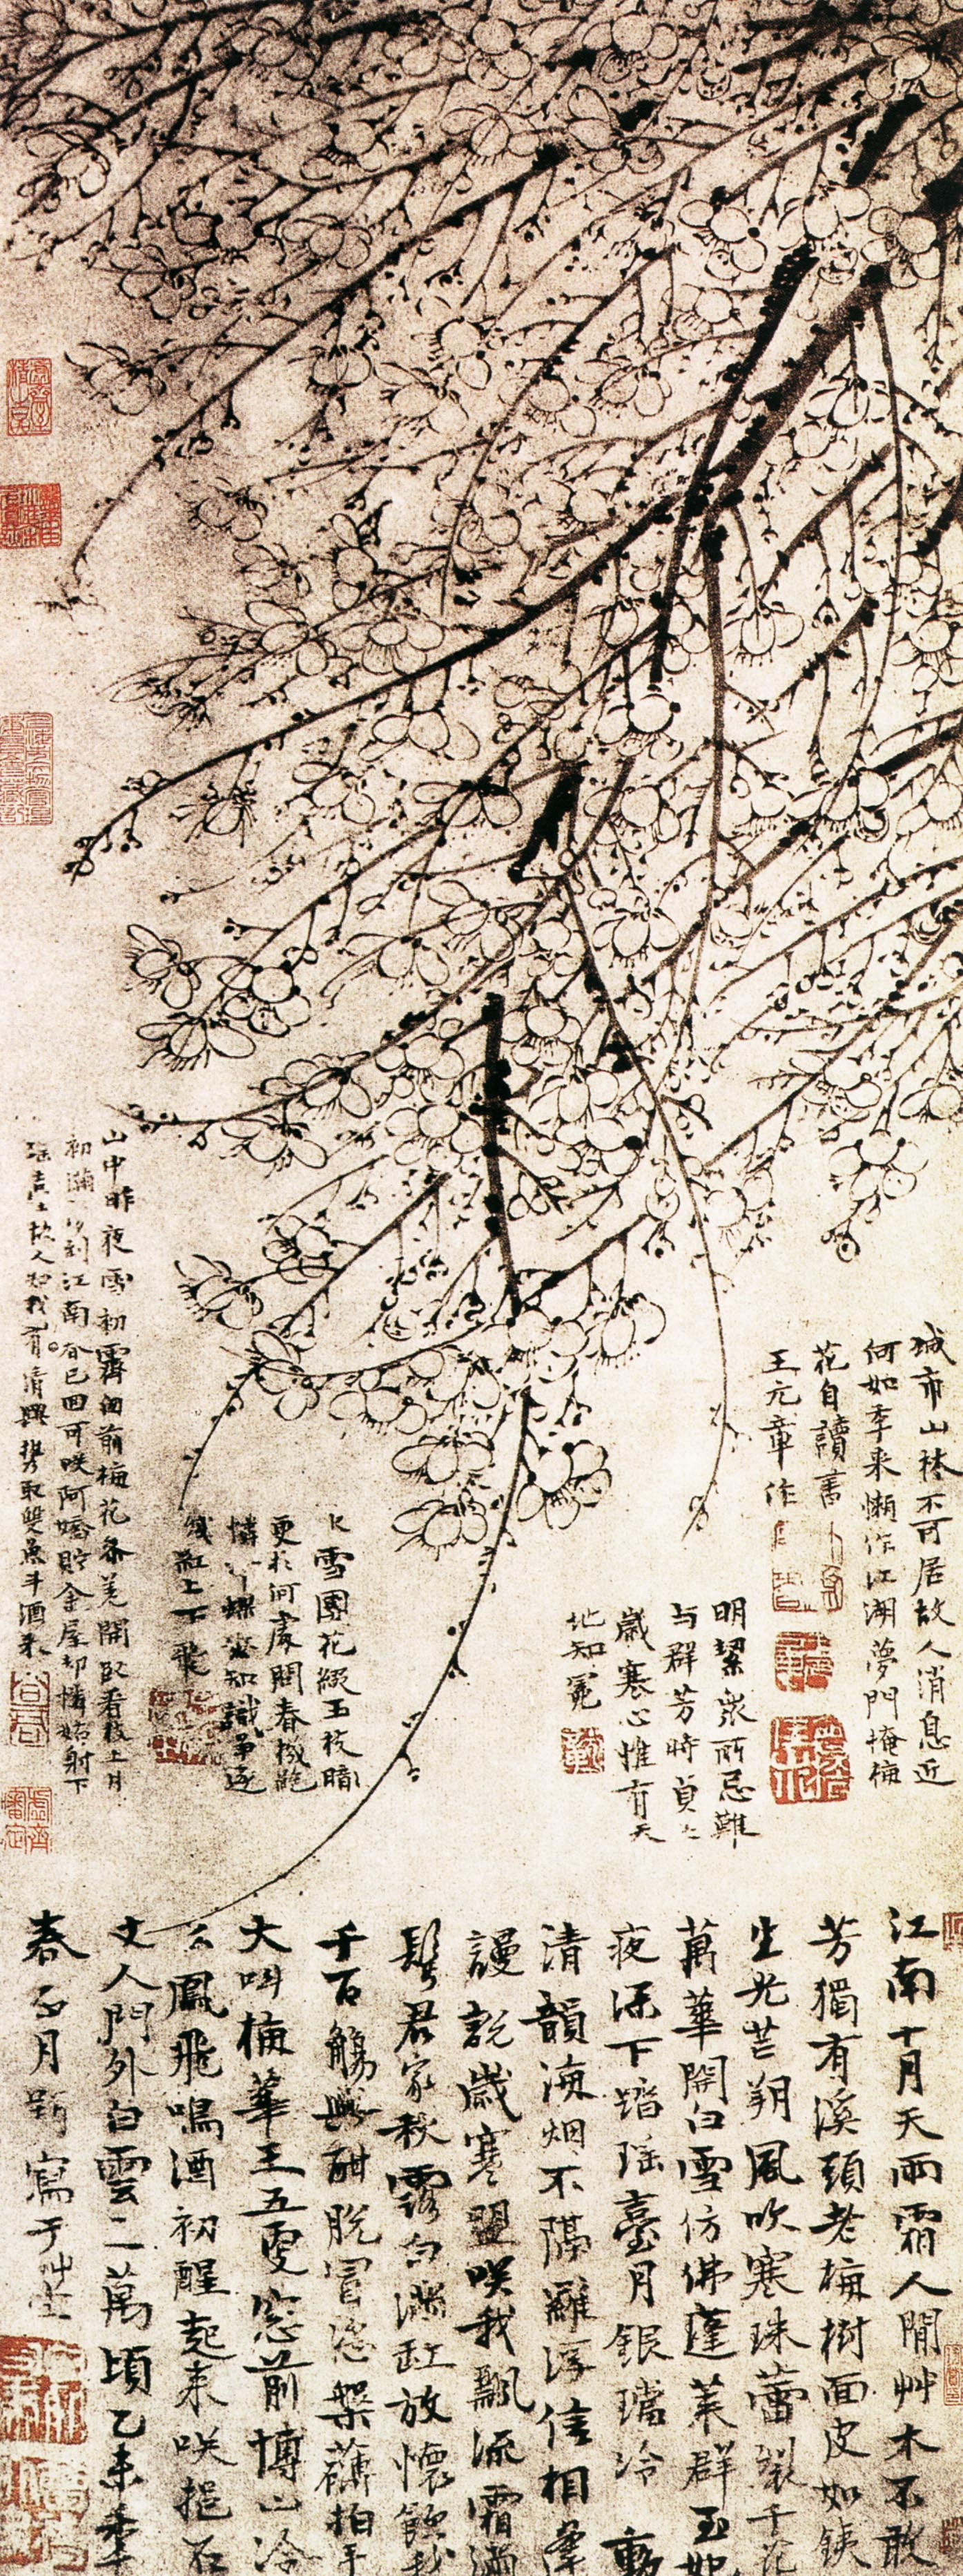 城市山林不可居故人消息近
何如年来懶作江湖夢門掩梅
花自讀書
王元章作
明潔衆所忌難
与群芳時貞之
歲寒心惟有天
地知
雪團花綴玉枝暗
更於何處問春機絶
憐蝶蜜知識爭逐
殘紅上下飛
山中昨夜雪初霽窗前梅花冬差開卧看枝上月
初滿到江南春已回可咲阿嬌貯金屋却憐姑射下
瑶臺故人知我有清興携取雙魚斗酒来
江南十月天雨霜人間艸木不敢
芳獨有溪頭老梅樹面皮如鐵
生光芒朔風吹寒珠蕾裂千花
萬華開白雪仿佛蓬萊群玉妃
夜深下踏瑶臺月銀璫泠動
清韻海烟不隔羅浮信相逢
謾説歲寒盟咲我飄流霜滿
鬢君家秋露白滿缸放懷飲我
千百觴興酣脱冒恣槃礴拍手
大叫梅華王五更窓前博山冷
么鳳飛鳴酒初醒起来咲挹石
丈人門外白雲二萬頃乙未年
春正月題寫于草堂